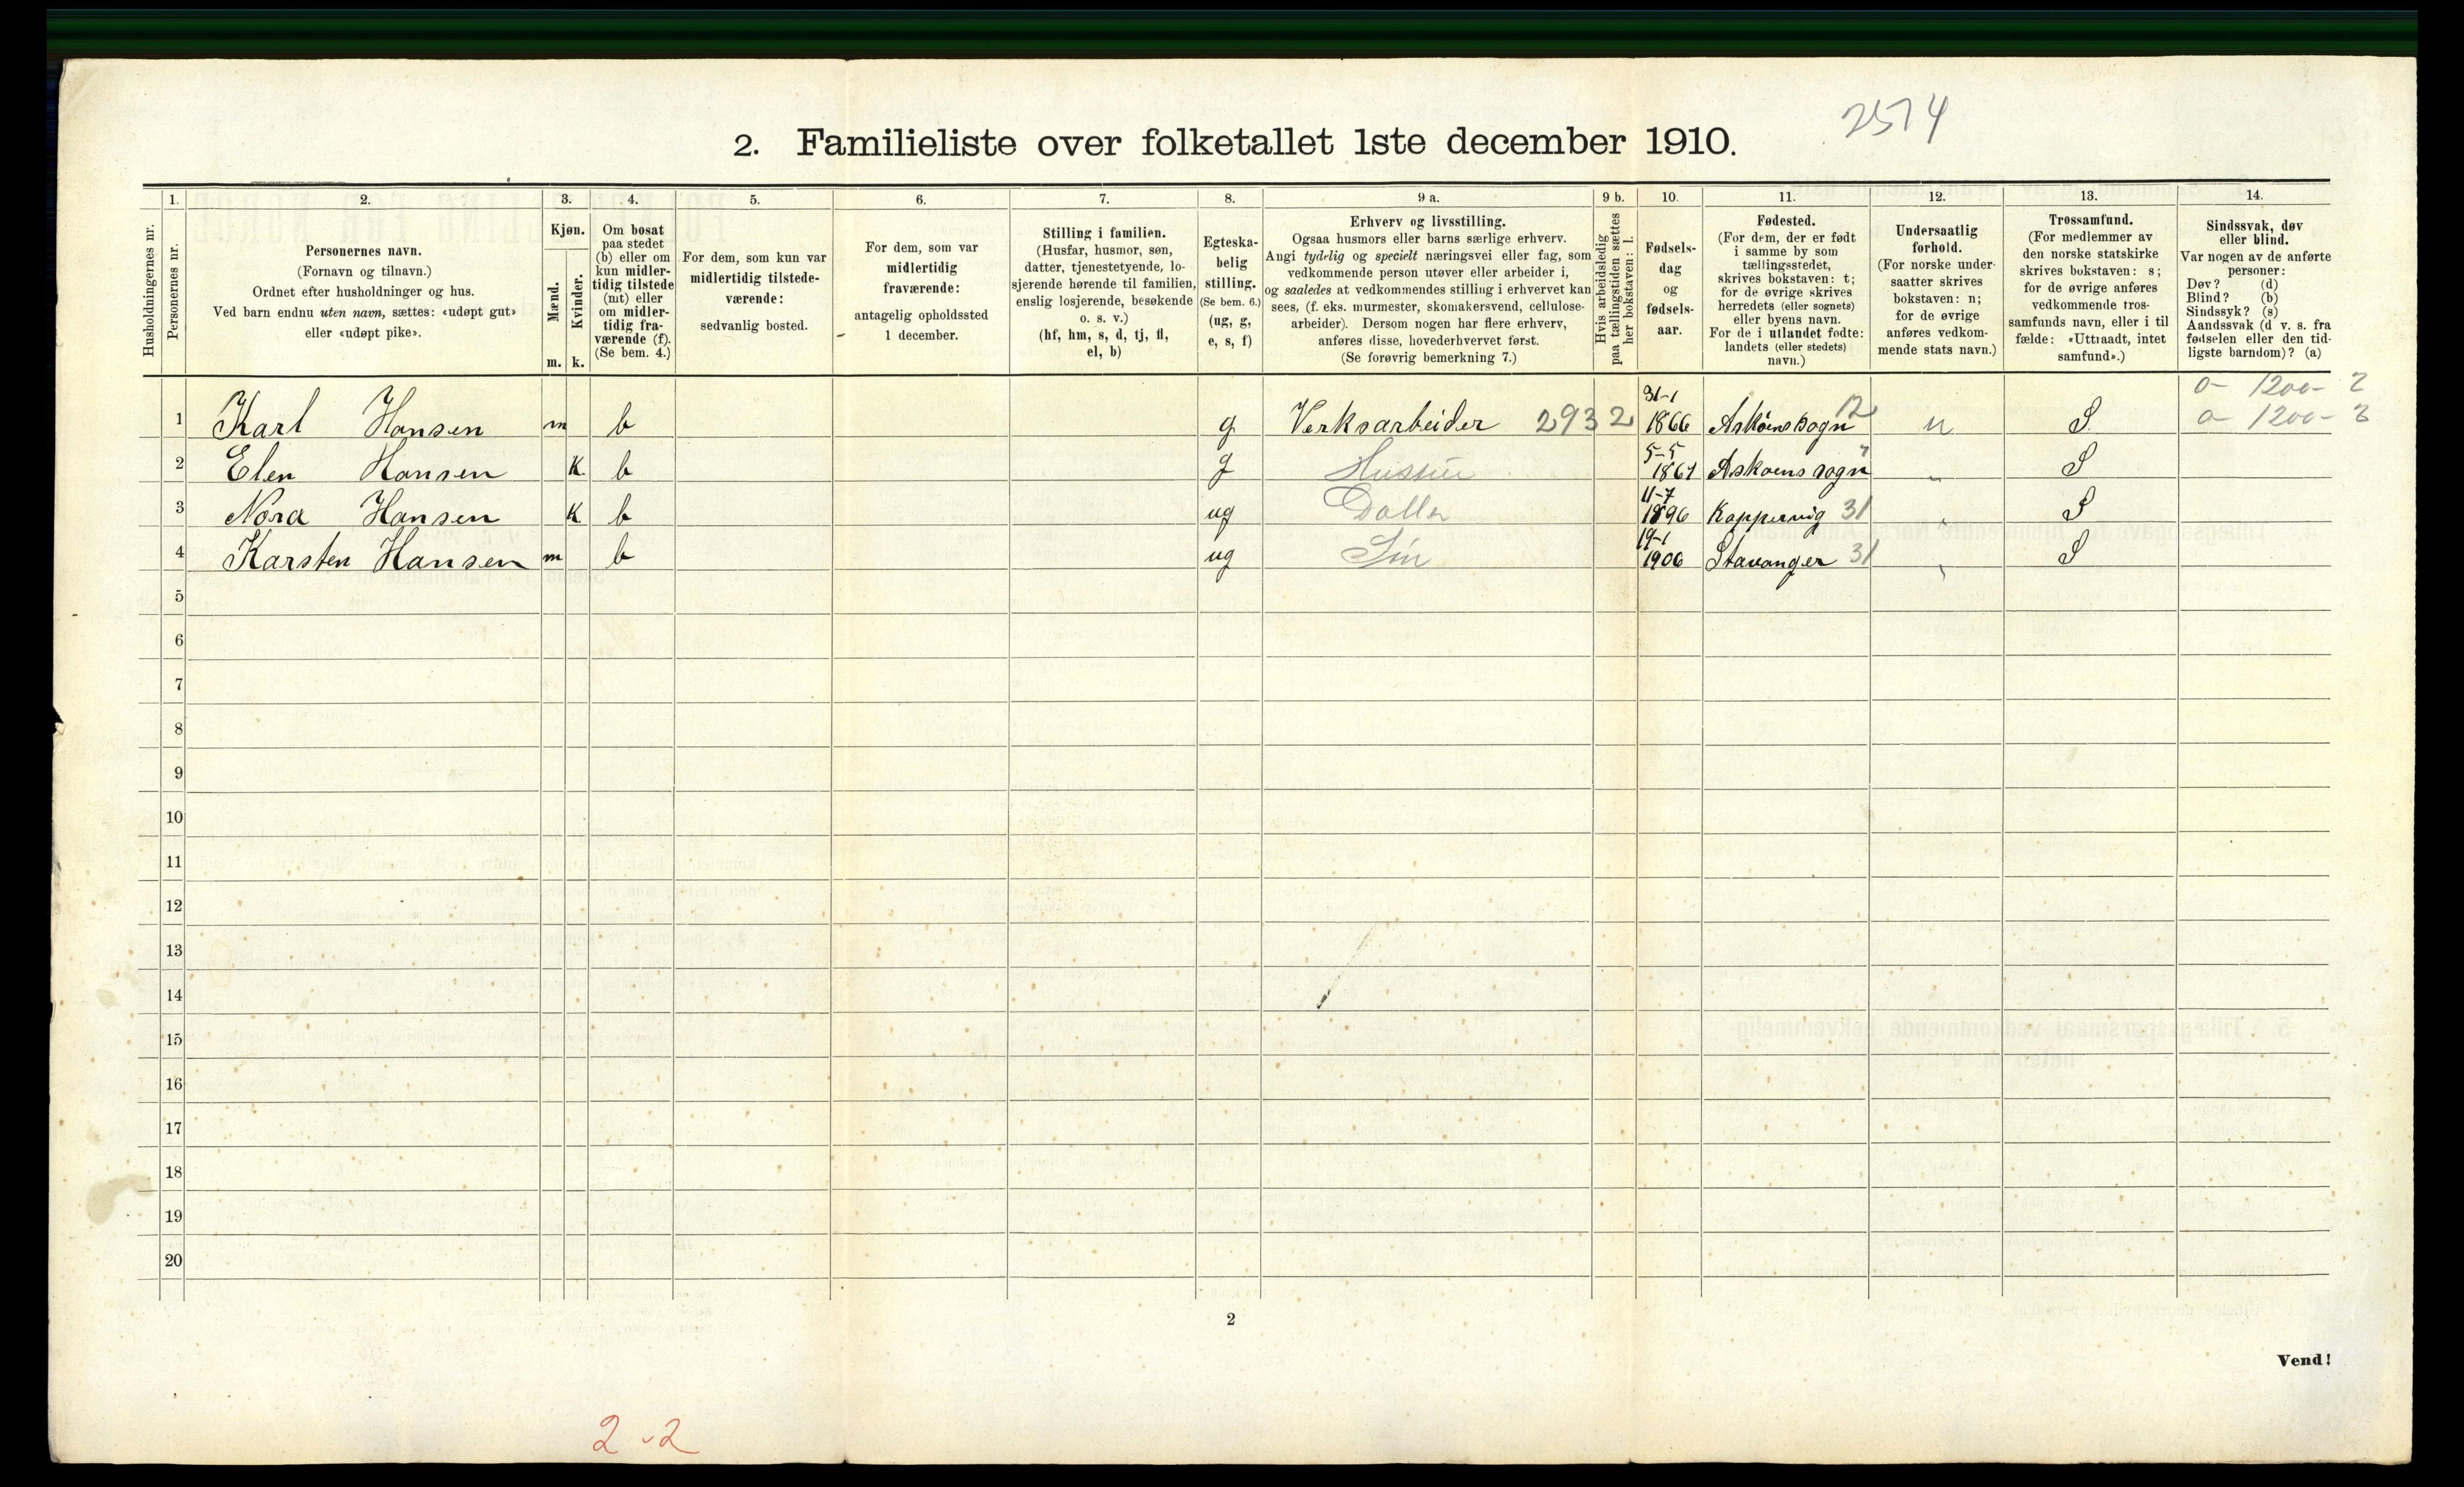 2574
2. Familieliste over folketallet 1ste december 1910.
Husholdningernes nr.
1.
Personernes nr.
2.
Personernes navn.
(Fornavn og tilnavn.)
Ordnet efter husholdninger og hus.
Ved barn endnu uten navn, sættes: «udøpt gut»
eller «udøpt pike».
3.
Kjøn.
Mænd.
m.
Kvinder.
k.
4.
Om bosat
paa stedet
(b) eller om
kun midler-
tidig tilstede
(mt) eller
om midler-
tidig fra-
værende (f).
(Se bem. 4.)
5.
For dem, som kun var
midlertidig tilstede-
værende:
sedvanlig bosted.
6.
For dem, som var
midlertidig
fraværende:
antagelig opholdssted
1 december.
7.
Stilling i familien.
(Husfar, husmor, søn,
datter, tjenestetyende, lo-
sjerende hørende til familien,
enslig losjerende, besøkende
o. s. v.)
(hf, hm, s, d, tj, fl,
el, b)
8.
Egteska-
belig
stilling.
(Se bem. 6.)
(ug, g,
e, s, f)
9 a.
Erhverv og livsstilling.
Ogsaa husmors eller barns særlige erhverv.
Angi tydelig og specielt næringsvei eller fag, som
vedkommende person utøver eller arbeider i,
og saaledes at vedkommendes stilling i erhvervet kan
sees, (f. eks. murmester, skomakersvend, cellulose-
arbeider). Dersom nogen har flere erhverv,
anføres disse, hovederhvervet først.
(Se forøvrig bemerkning 7.)
9 b.
Hvis arbeidsledig
paa tællingstiden sættes
her bokstaven: l.
10.
Fødsels-
dag
og
fødsels-
aar.
11.
Fødested.
(For dem, der er født
i samme by som
tællingsstedet,
skrives bokstaven: t;
for de øvrige skrives
herredets (eller sognets)
eller byens navn.
For de i utlandet fødte:
landets (eller stedets)
navn.)
12.
Undersaatlig
forhold.
(For norske under-
saatter skrives
bokstaven: n;
for de øvrige
anføres vedkom-
mende stats navn.)
13.
Trossamfund.
(For medlemmer av
den norske statskirke
skrives bokstaven: s;
for de øvrige anføres
vedkommende tros-
samfunds navn, eller i til
fælde: «Uttraadt, intet
samfund».)
14.
Sindssvak, døv
eller blind.
Var nogen av de anførte
personer:
Døv? (d)
Blind? (b)
Sindssyk? (s)
Aandssvak (d v. s. fra
fødselen eller den tid-
ligste barndom)? (a)
0- 1200- 2
1 Karl Hansen m b g Verksarbeider 2932 31-1 1866 Askøens sogn 12 n S 0- 1200- 3
2 Elen Hansen K b g Hustru 5-5 1861 Askoens sogn " „ S
3 Nora Hansen K b ug Datter 11-7 1896 Koppervig 31 „ S
4 Karsten Hansen m b ug Søn 19-1 1906 Stavanger 31 „ S
5
6
7
8
9
10
11
12
13
14
15
16
17
18
19
20
2
Vend!
2-2